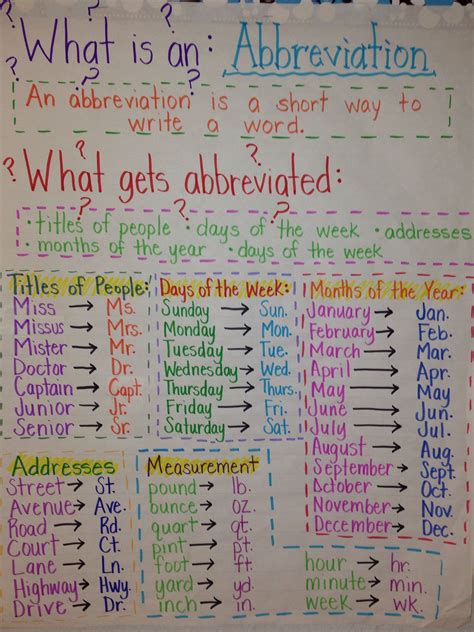 ? ? ? ?
What is an: Abbreviation
An abbreviation is a short way to
write a word.
? ? ? ? ?
What gets abbreviated:
• titles of people • days of the week • addresses
• months of the year • days of the week
Titles of People:
Miss → Ms.
Missus → Mrs.
Mister → Mr.
Doctor → Dr.
Captain → Capt.
Junior → Jr.
Senior → Sr.
Days of the Week:
Sunday → Sun.
Monday → Mon.
Tuesday → Tue.
Wednesday → Wed.
Thursday → Thurs.
Friday → Fri.
Saturday → Sat.
Months of the Year:
January → Jan.
February → Feb.
March → Mar.
April → Apr.
May → May.
June → Jun.
July → Jul.
August → Aug.
September → Sept.
October → Oct.
November → Nov.
December → Dec.
Addresses
Street → St.
Avenue → Ave.
Road → Rd.
Court → Ct.
Lane → Ln.
Highway → Hwy.
Drive → Dr.
Measurement
pound → lb.
ounce → oz.
quart → qt.
pint → pt.
foot → ft.
yard → yd.
inch → in.
hour → hr.
minute → min.
week → wk.